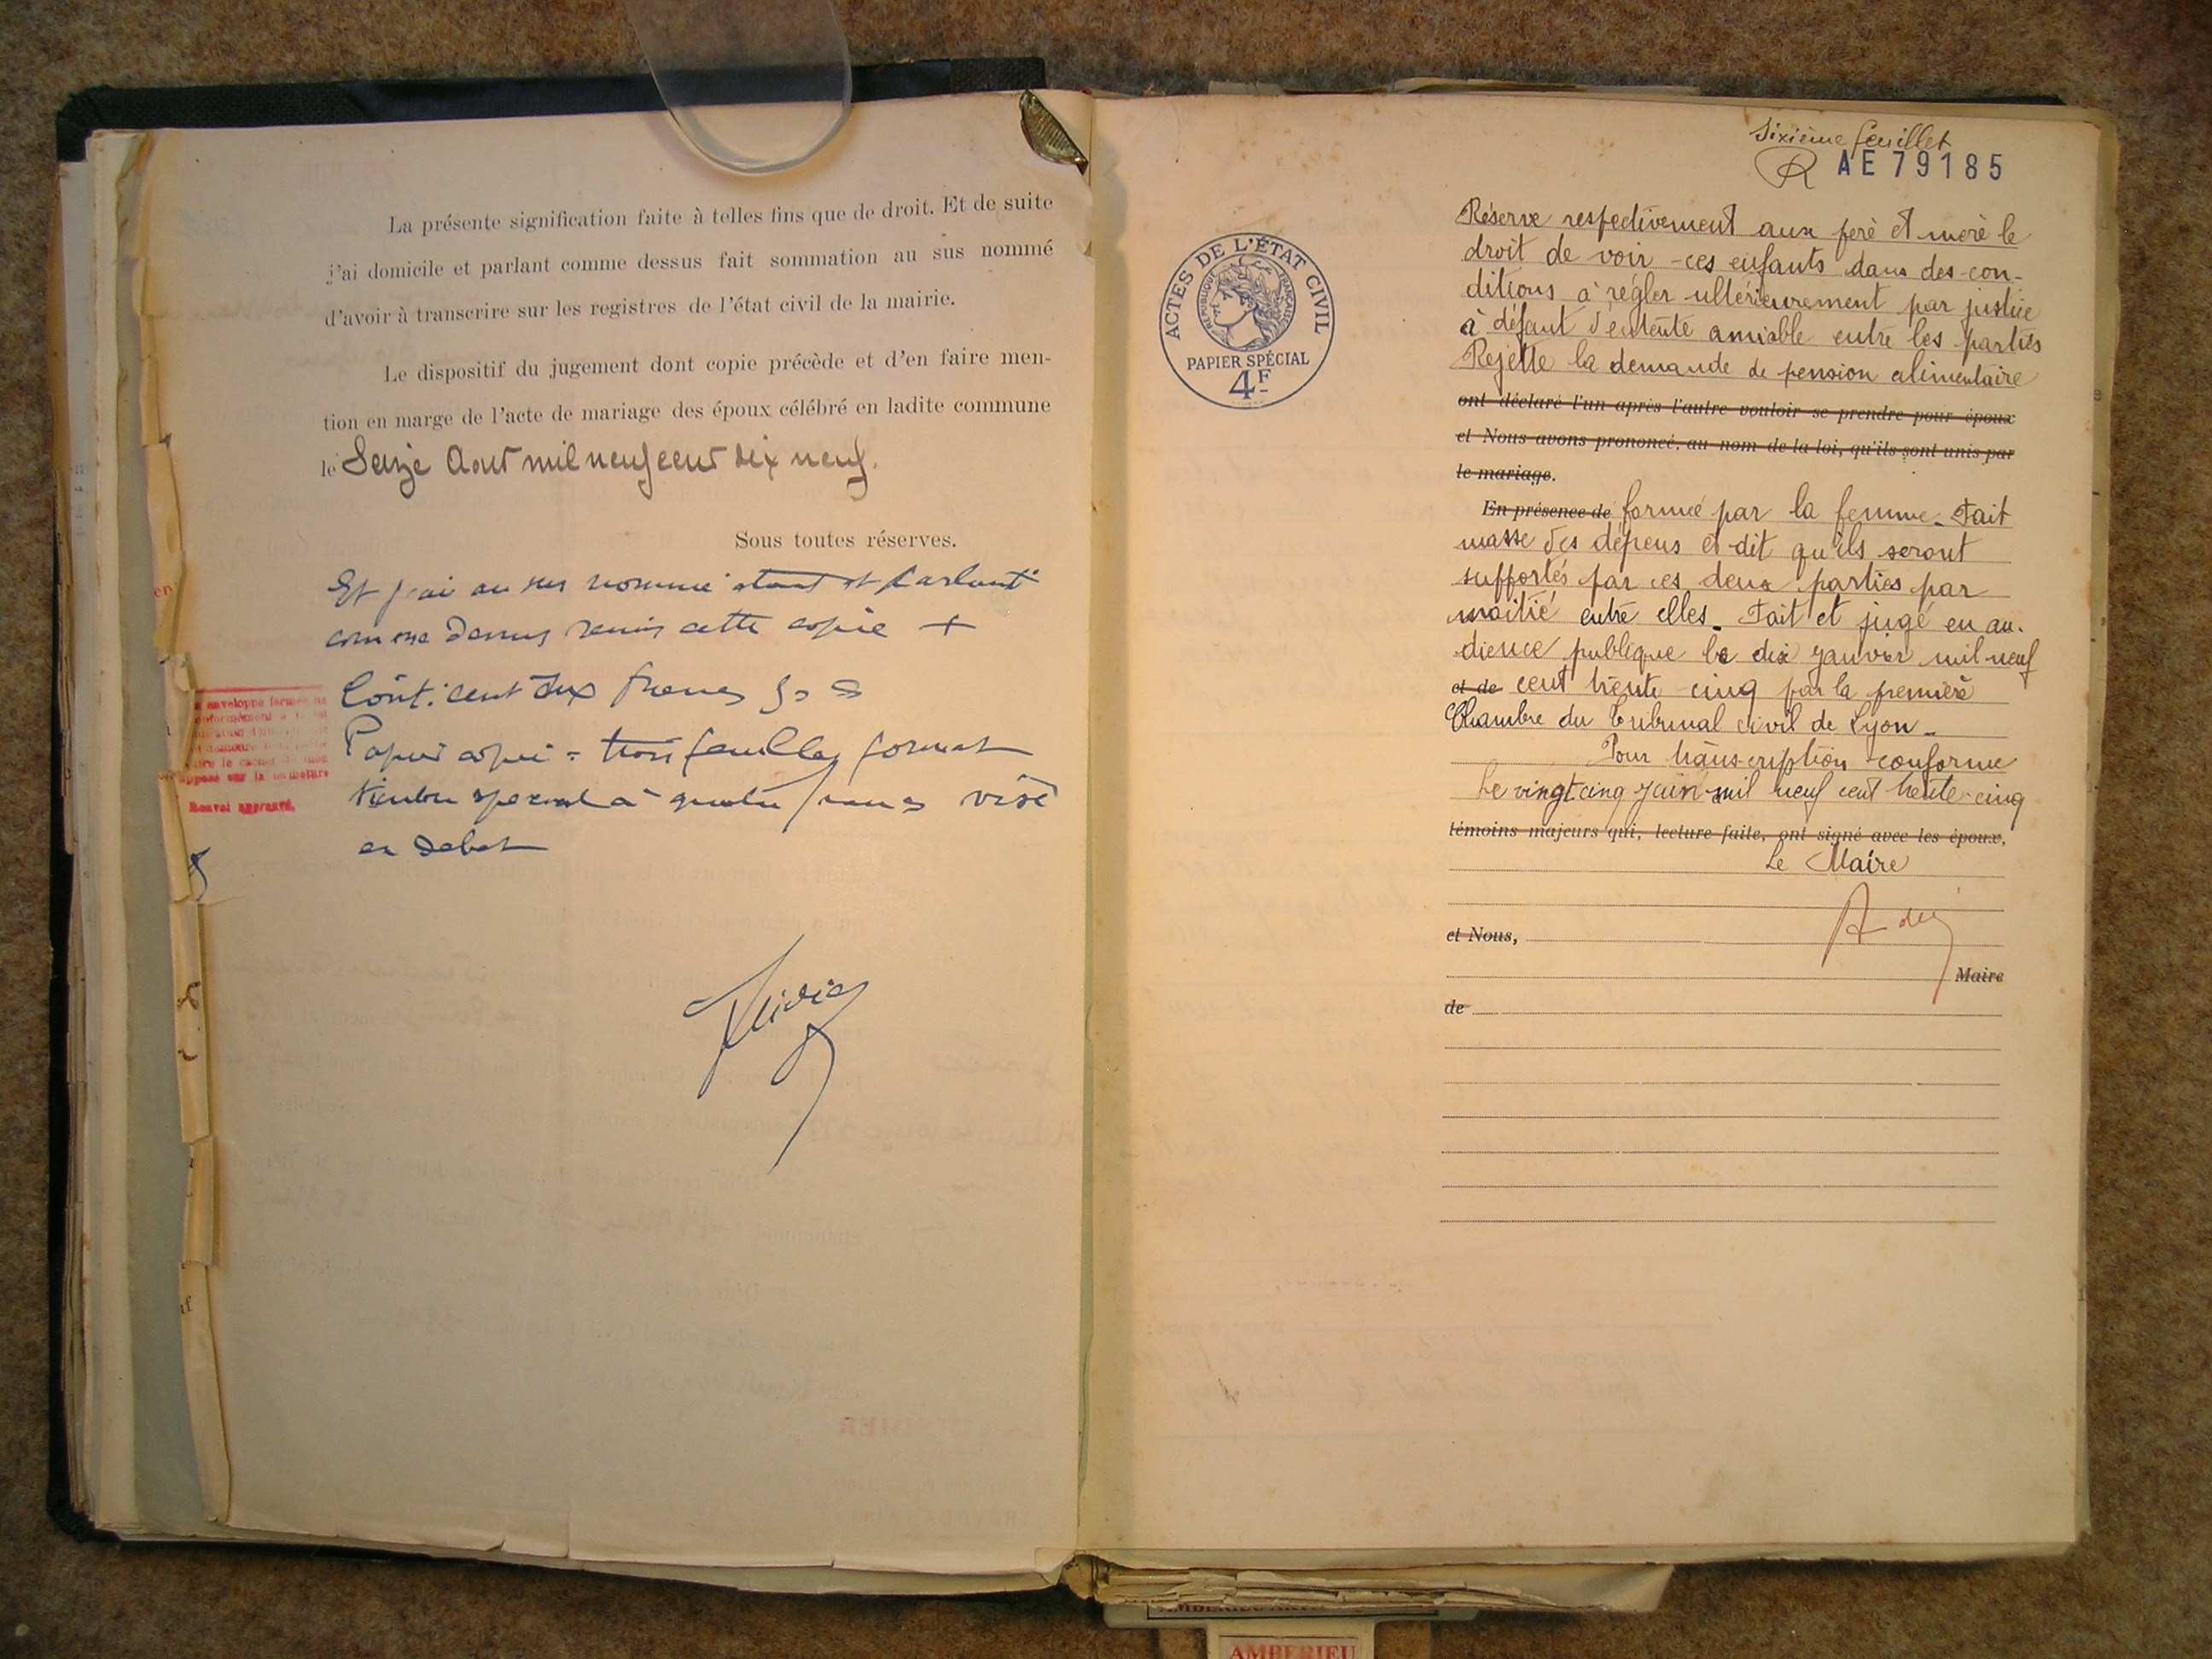 La présente signification faite à telles fins que de droit. Et de suite
j'ai domicile et parlant comme dessus fait sommation au sus nommé
d'avoir à transcrire sur les registres de l'état civil de la mairie.
Le dispositif du jugement dont copie précède et d'en faire men-
tion en marge de l'acte de mariage des époux célébré en ladite commune
le Seize Aout mil neuf cent dix neuf.
Sous toutes réserves.
Et j'ai au sus nommé étant et parlant
comme dessus remis cette copie +
Coût : cent dix francs 50
Papier copie = trois feuilles format
timbre special à quatre francs visé
en debet
enveloppe fermée
Renvoi approuvé.
Sixième feuillet
AE 79185
ACTES DE L'ÉTAT CIVIL
RÉPUBLIQUE FRANÇAISE
PAPIER SPÉCIAL
4F
Réserve respectivement aux père et mère le
droit de voir ces enfants dans des con-
ditions à régler ultérieurement par justice
à défaut d'entente amiable entre les parties
Rejette la demande de pension alimentaire
ont déclaré l'un après l'autre vouloir se prendre pour époux
et Nous avons prononcé, au nom de la loi, qu'ils sont unis par
le mariage.
En présence de formée par la femme. Fait
masse des dépens et dit qu'ils seront
supportés par ces deux parties par
moitié entre elles. Fait et jugé en au-
dience publique le dix janvier mil neuf
et de cent trente cinq par la première
Chambre du Tribunal civil de Lyon -
Pour transcription conforme
Le vingt cinq juin mil neuf cent trente-cinq
témoins majeurs qui, lecture faite, ont signé avec les époux,
Le Maire
et Nous,
Maire
de
AMBERIEU